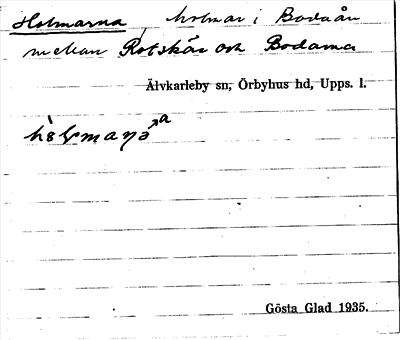 Holmarna, holmar i Bodaån
mellan Rotskär och Bodarna
Älvkarleby sn, Örbyhus hd, Upps. l.
Gösta Glad 1935.